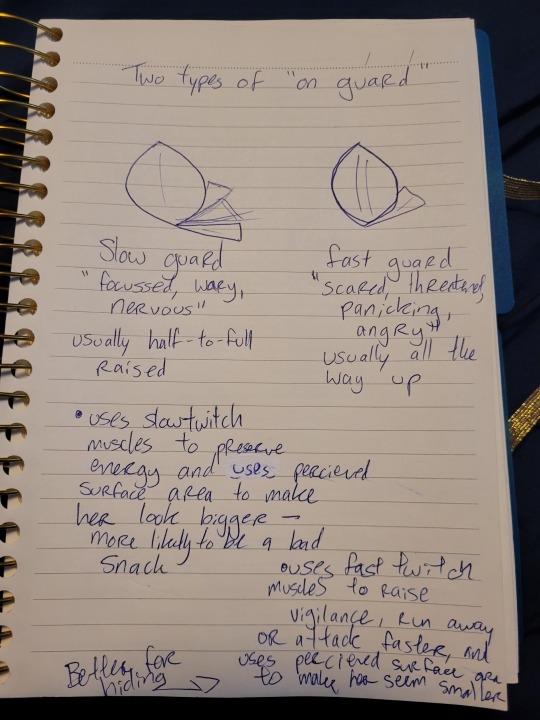 Two types of "on guard"
Slow guard
"focussed, wary,
nervous"
usually half-to-full
raised
fast guard
"scared, threatened,
panicking,
angry"
usually all the
way up
• uses slowtwitch
muscles to preserve
energy and uses percieved
surface area to make
her look bigger →
more likely to be a bad
snack
• uses fast twitch
muscles to raise
vigilance, run away
or attack faster, and
uses percieved surface area
to make her seem smaller
Better for
hiding →